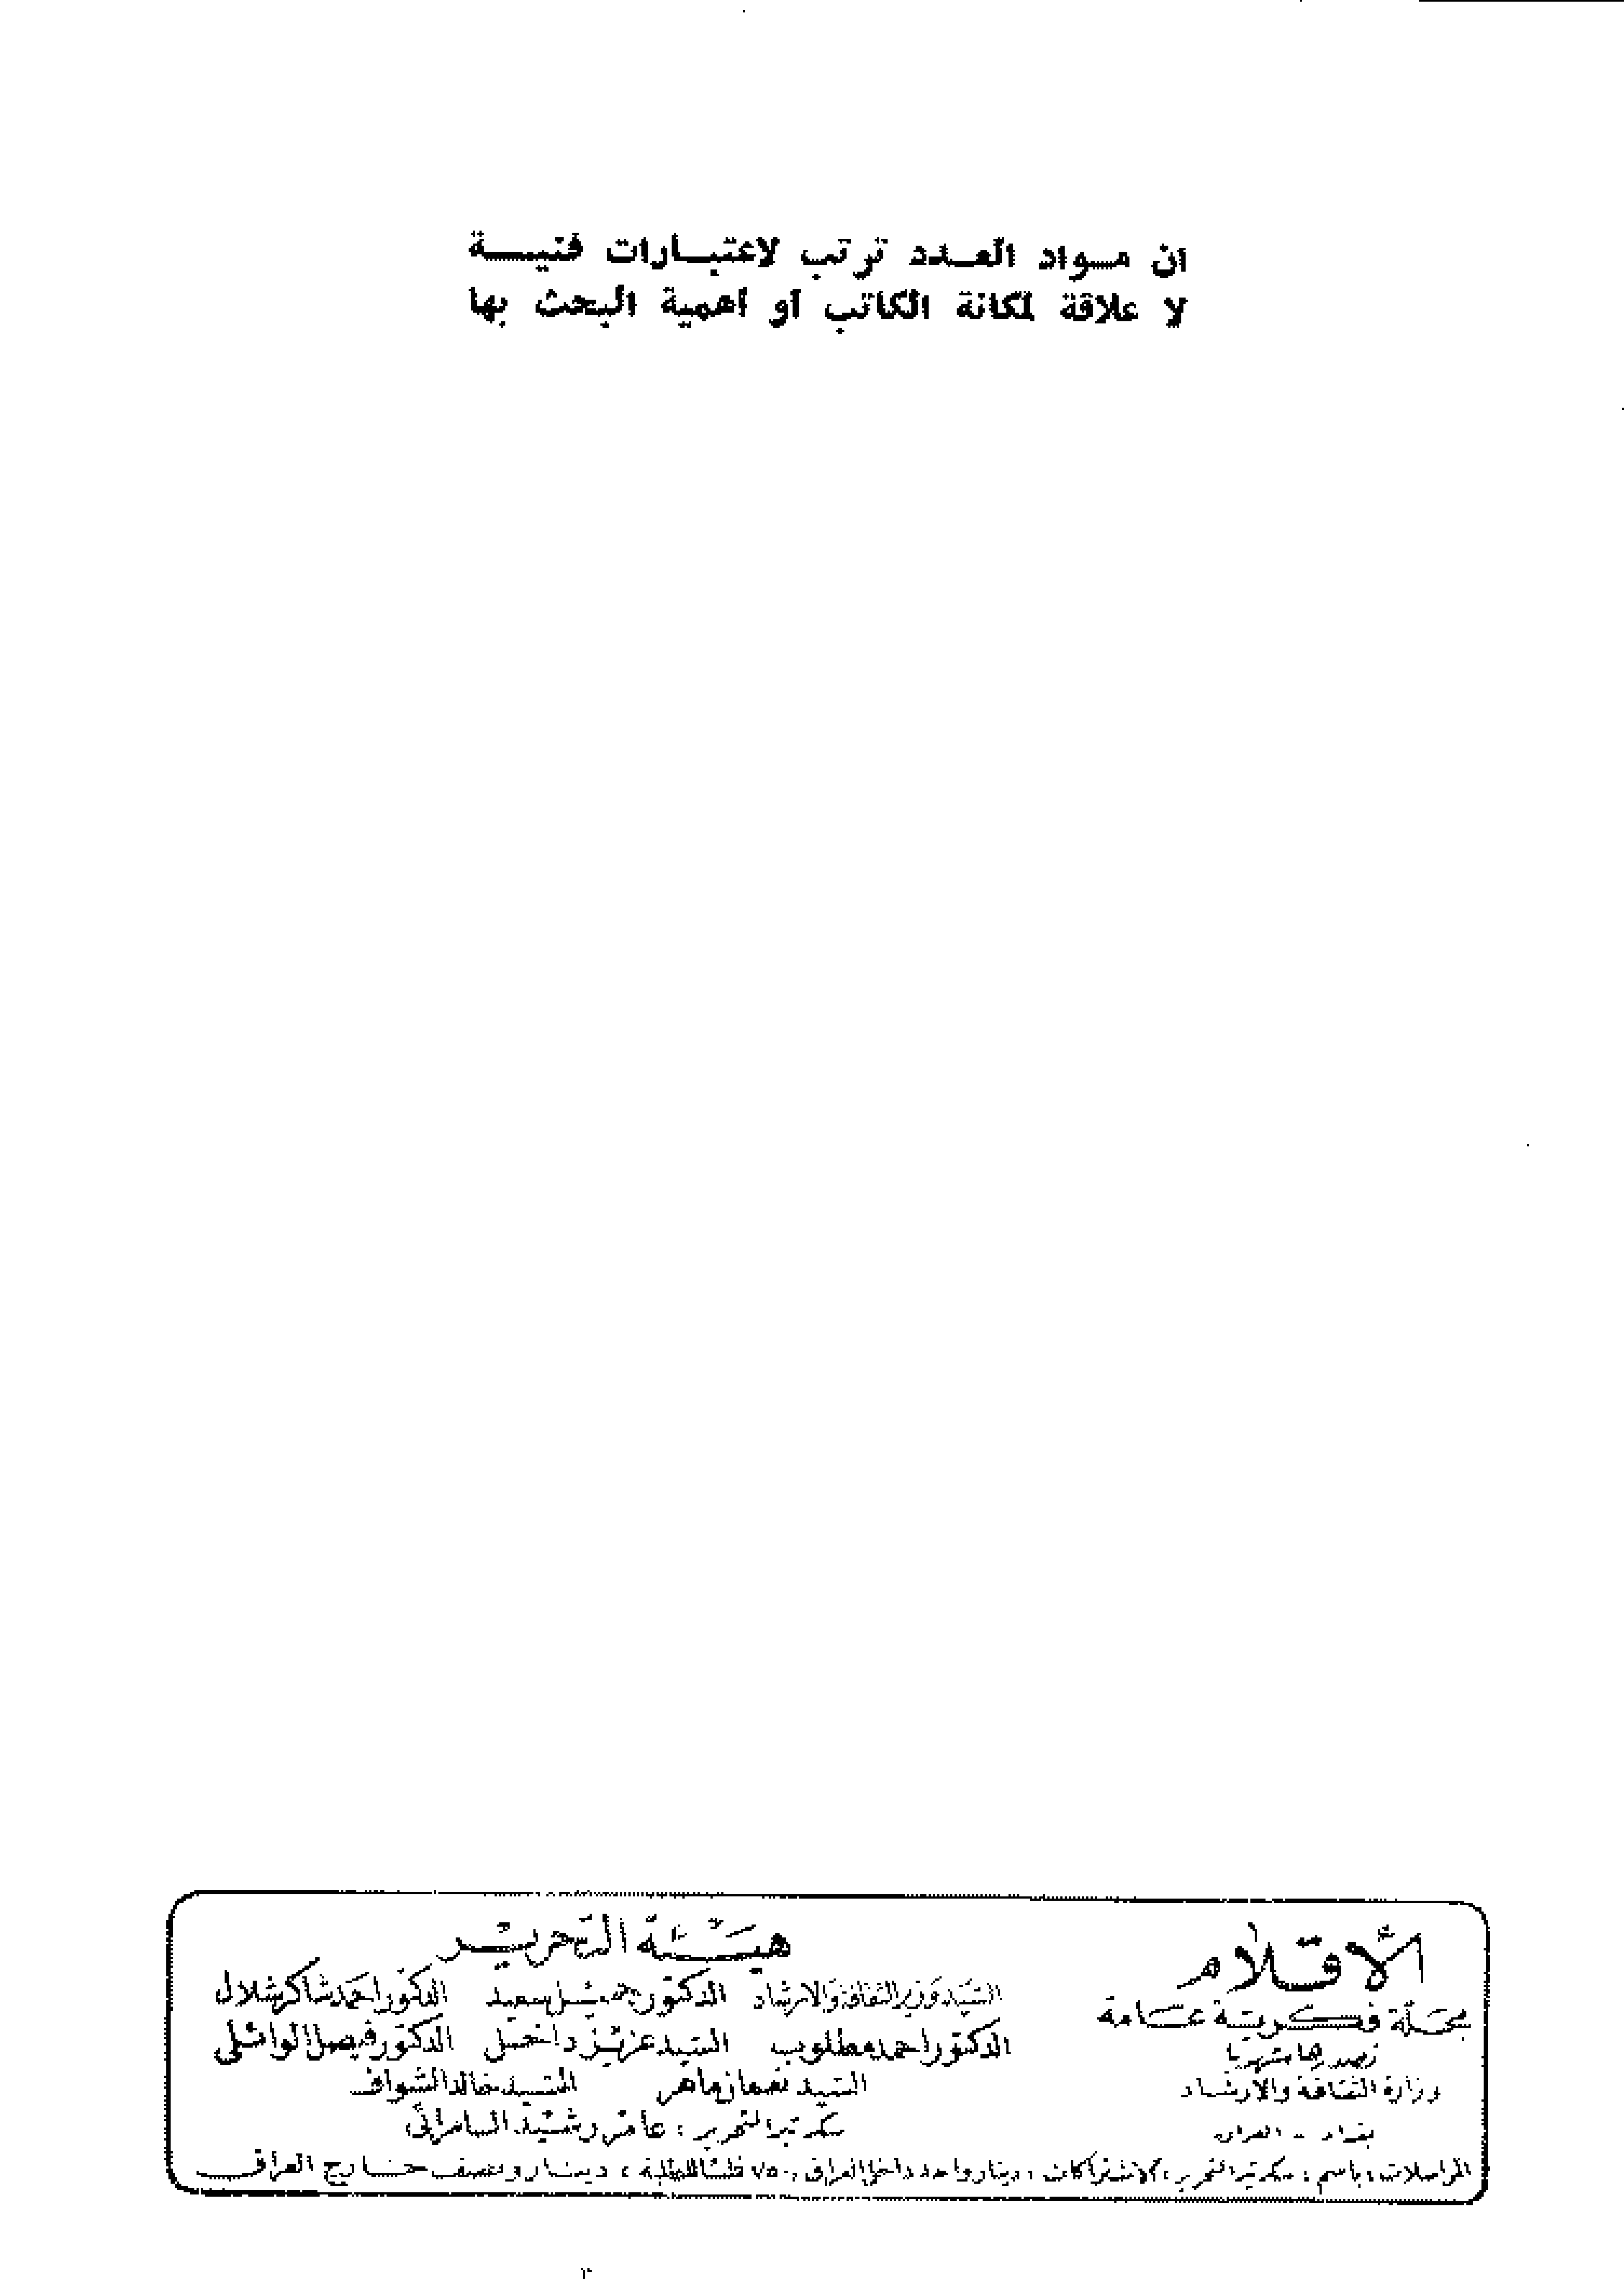 ان مواد العدد ترتب لاعتبارات فنية
لا علاقة لمكانة الكاتب أو أهمية البحث بها
الأقلام
مجلة فكرية عامة
تصدرها شهريا
وزارة الثقافة والارشاد
بغداد - العراق
هيئة التحرير
السيد وزير الثقافة والارشاد الدكتور جميل سعيد الدكتور احمد شاكر شلال
الدكتور احمد مطلوب السيد عزيز داخل الدكتور فيصل الوائلي
السيد نعمان ماهر السيد خالد الشواف
سكرتير التحرير : عامر رشيد السامرائي
المراسلات ، باسم : سكرتير التحرير ، الاشتراكات : دينار واحد داخل العراق ، ٧٥٠ فلسا للطلبة ، دينار ونصف خارج العراق